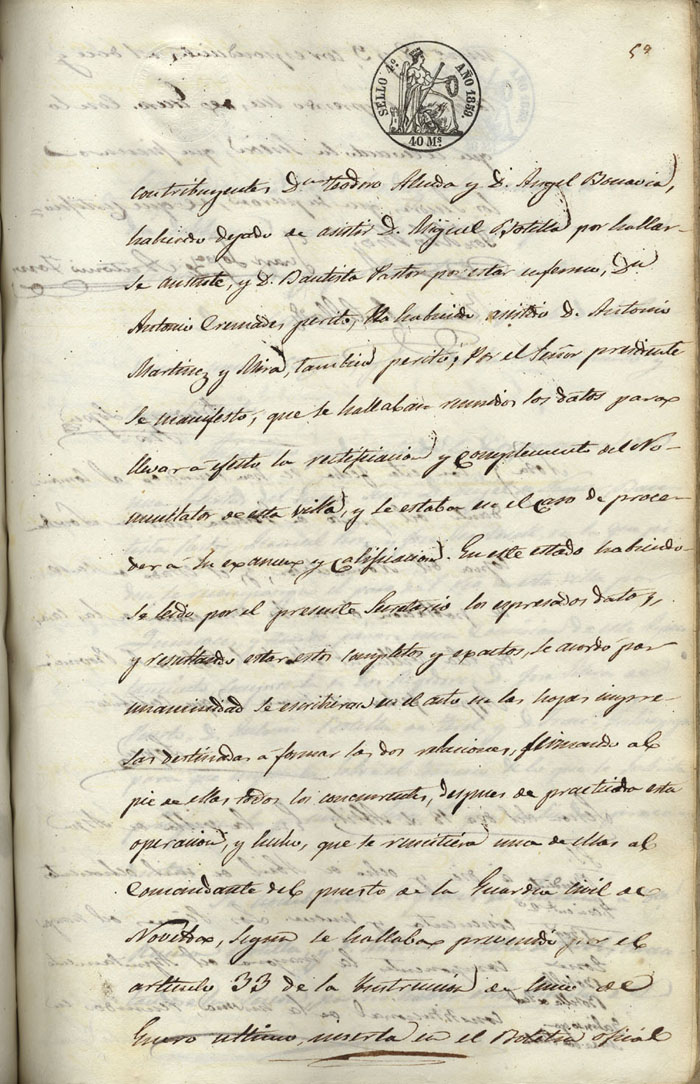 59
SELLO 4º AÑO 1859.
40 Ms.
contribuyentes Dn Teodoro Alenda y D. Angel Bonavia,
habiendo dejado de asistir D. Miguel Botella por hallar-
se ausente, y D. Bautista Pastor por estar enfermo, Dn
Antonio Cremades perito, ha habiendo asistido D. Antonio
Martinez y Mira, tambien perito; Por el Señor presidente
se manifesto, que se hallaban reunidos los datos para
llevar á efecto la rectificacion y complemento del No-
menclator de esta villa, y se estaba en el caso de proce-
der á su examen y calificacion. En este estado habiendo-
se leido por el presente Secretario los espresados datos,
y resultando estar estos completos y exactos, se acordó por
unanimidad se escribieran en el acto en las hojas impre-
sas destinadas á formar las dos relaciones, firmando al
pie de ellas todos los concurrentes, despues de practicada esta
operacion, y hecho, que se remitiera una de ellas al
Comandante del puesto de la Guardia Civil de
Novelda, segun se hallaba prevenido por el
articulo 33 de la Instruccion de cinco de
Enero ultimo, inserta en el Boletin oficial